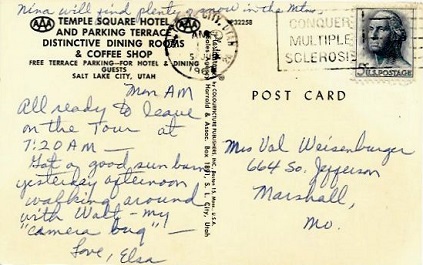 Nina will find plenty of snow in the Mtns.
AAA
TEMPLE SQUARE HOTEL
AND PARKING TERRACE
DISTINCTIVE DINING ROOMS
& COFFEE SHOP
AAA
FREE TERRACE PARKING—FOR HOTEL & DINING
GUESTS
SALT LAKE CITY, UTAH
P32258
CITY, UTAH
CONQUER
MULTIPLE
SCLEROSIS
5¢ U.S. POSTAGE
Mon AM
All ready to leave
on the Tour at
7:20 AM —
Got a good sunburn
yesterday afternoon
walking around
with Walt - my
"camera bug" —
Love, Elsa
by COLOURPICTURE PUBLISHERS, INC., Boston 15, Mass. U.S.A.
Harrold & Assoc. Box 1891, S. L. City, Utah
POST CARD
Mrs Val Weisenburger
664 So. Jefferson
Marshall,
Mo.